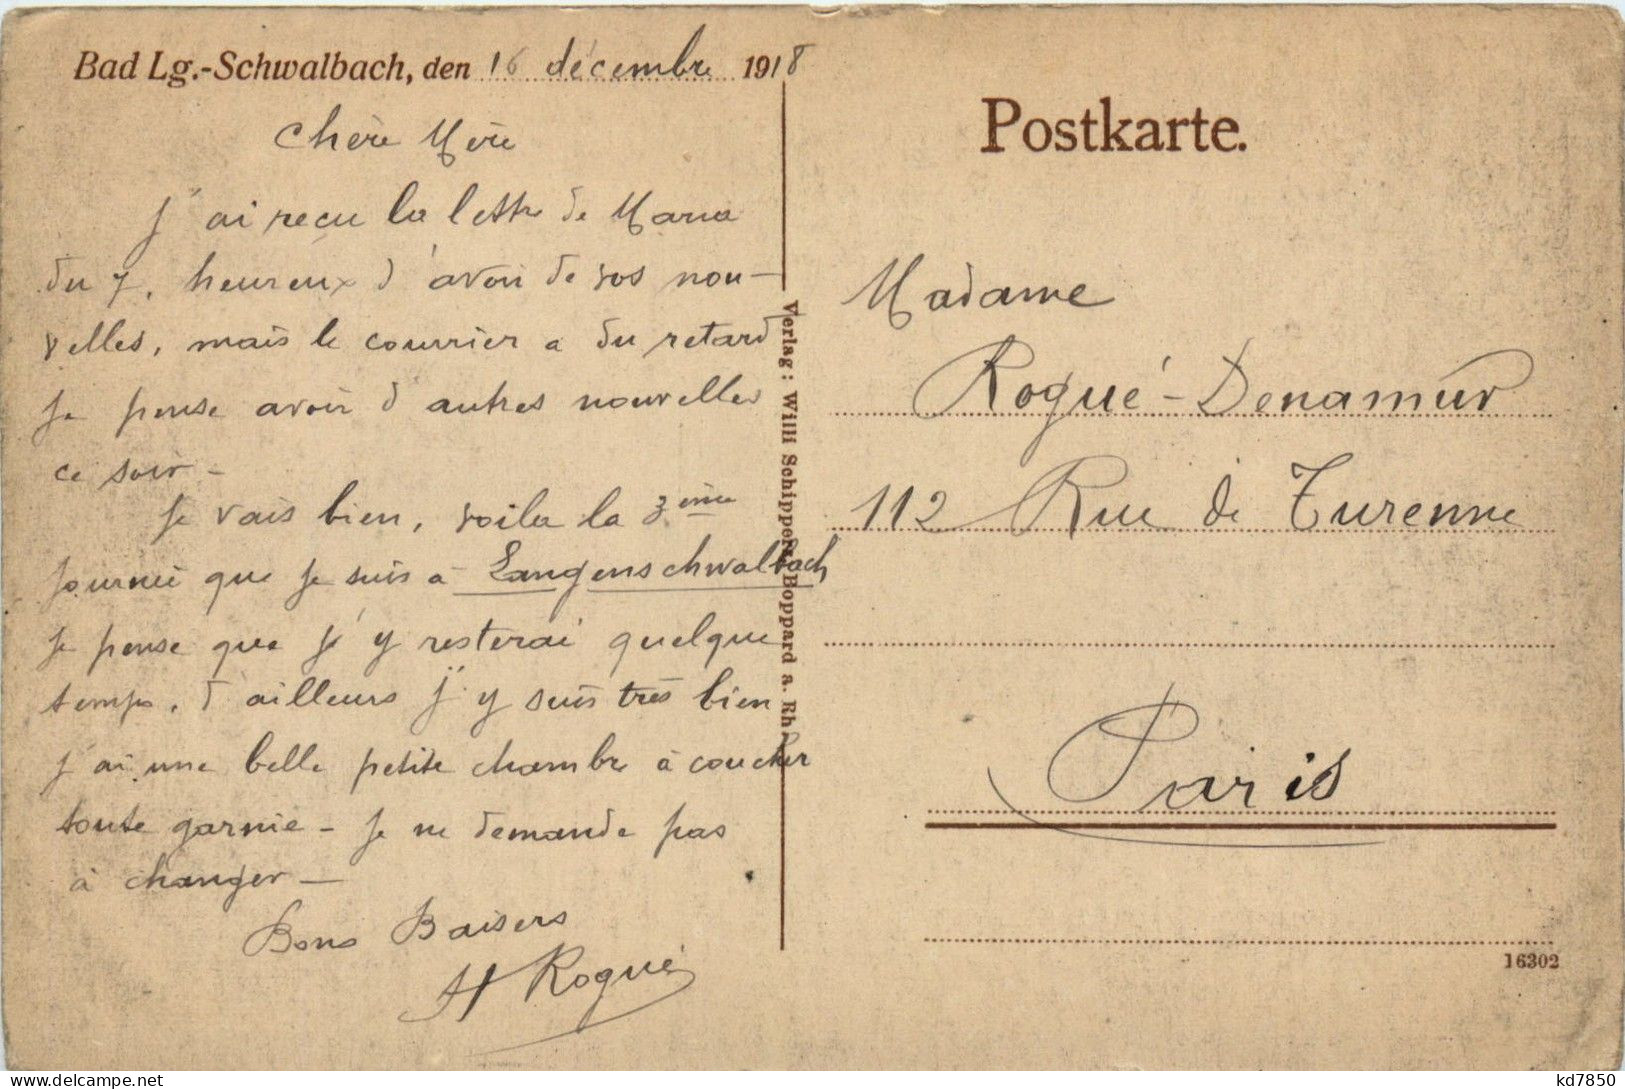 Bad Lg.-Schwalbach, den 16 décembre 1918
Chère Mère
J'ai reçu la lettre de Maria
du 7, heureux d'avoir de vos nou-
velles, mais le courrier a du retard
Je pense avoir d'autres nouvelles
ce soir -
Je vais bien, voila la 3ème
journée que je suis à Langenschwalbach
Je pense que j'y resterai quelque
temps, d'ailleurs j'y suis très bien
j'ai une belle petite chambre à coucher
toute garnie - Je ne demande pas
à changer -
Bons Baisers
H Rogué
Verlag: Willi Schippers, Boppard a. Rh.
Postkarte.
Madame
Rogué-Denamur
112 Rue de Turenne
Paris
16302
kd7850